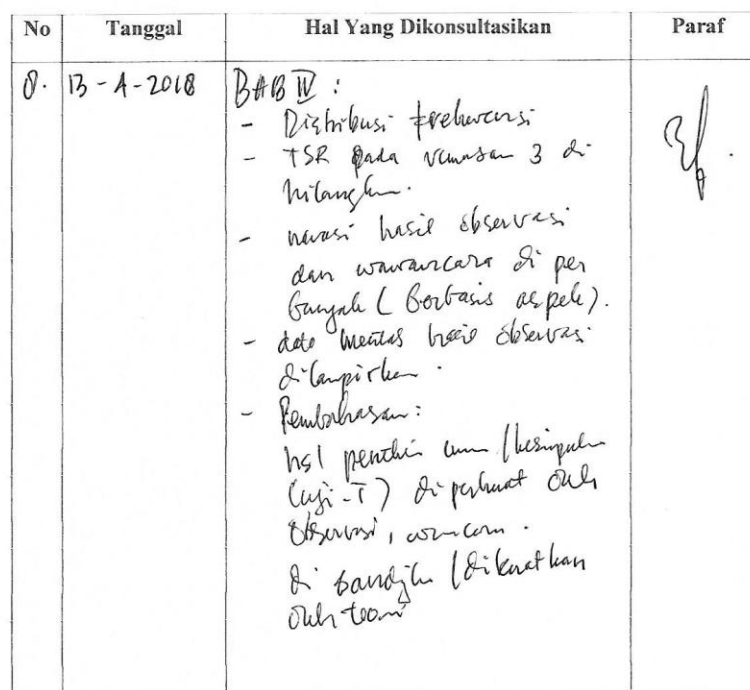 No Tanggal Hal Yang Dikonsultasikan Paraf
8. 13 - 4 - 2018 BAB IV :
- Distribusi frekuensi
- TSR pada rumusan 3 di
hilangkan.
- narasi hasil observasi
dan wawancara di per
banyak ( berbasis aspek ).
- data mentas hasil observasi
dilampirkan .
- Pembahasan :
hsl umum / kesimpulan
(uji-T) diperkuat oleh
observasi,
di / dikuatkan
oleh teori